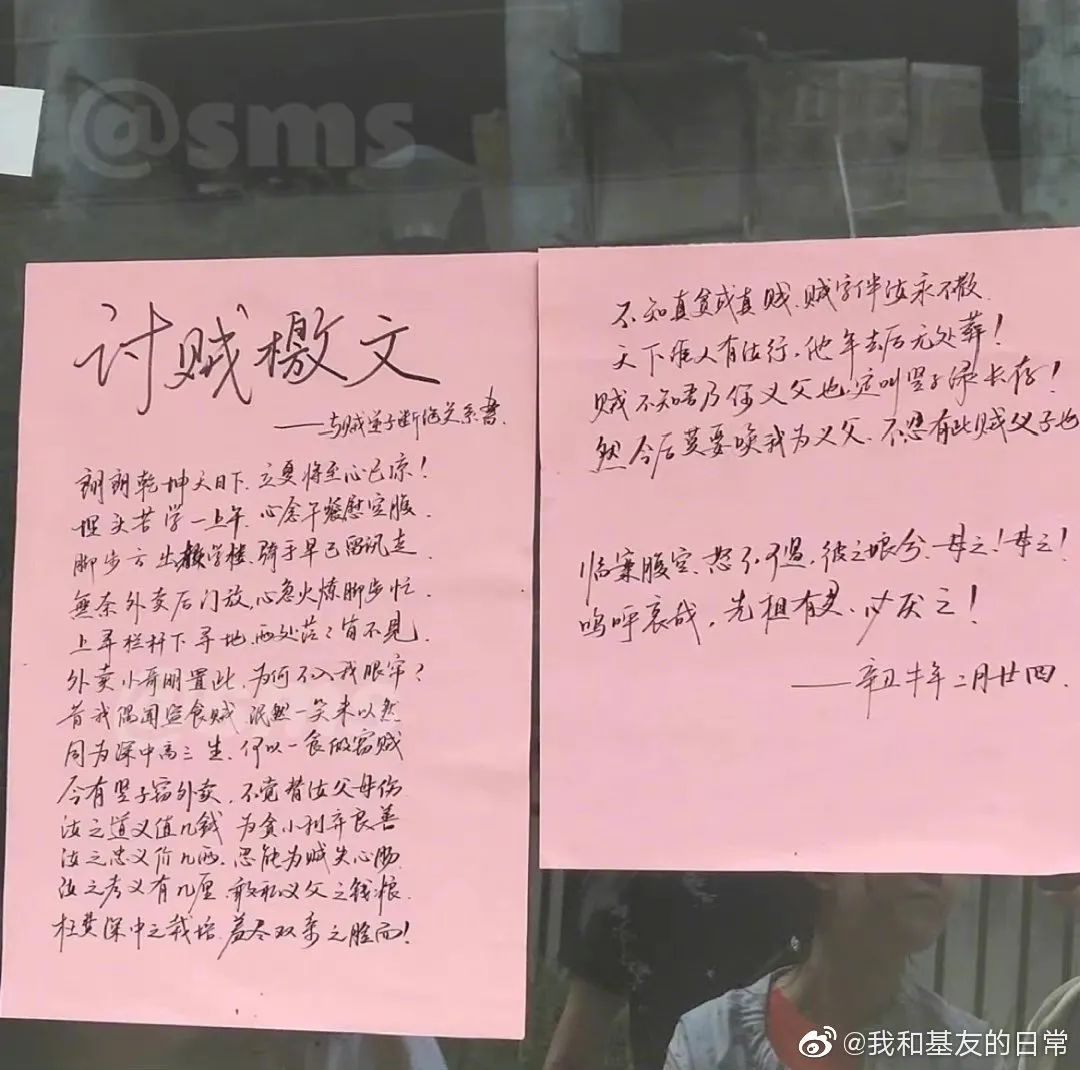 @sms
讨贼檄文
——与贼逆子断绝关系书
朗朗乾坤天日下、立夏将至心已凉！
埋头苦学一上午、心念午餐慰空腹、
脚步方出教学楼、骑手早已留讯走
無奈外卖后门放、心急火燎脚步忙、
上寻栏杆下寻地、两处茫々皆不见、
外卖小哥明置此、为何不入我眼帘？
昔我偶闻盗食贼 泯然一笑未以然
同为深中高三生、何以一食做窃贼
今有竖子窃外卖、不觉替汝父母伤
汝之道义值几钱 为贪小利弃良善
汝之忠义价几两、思能为贼失心肠、
汝之孝义有几厘 敢私义父之钱粮、
枉费深中之栽培、羞尽双亲之脸面！
不知真贫或真贼、贼字伴汝永不散、
天下唯人有法行、他年去后无处葬！
贼不知吾乃你义父也、定叫竖子绿长存！
然今后莫要唤我为义父、不忍有此贼父子也
临案腹空、怒不可遏、彼之娘兮、母之！母之！
呜呼哀哉、先祖有灵、必厌之！
——辛丑牛年二月廿四、
@我和基友的日常